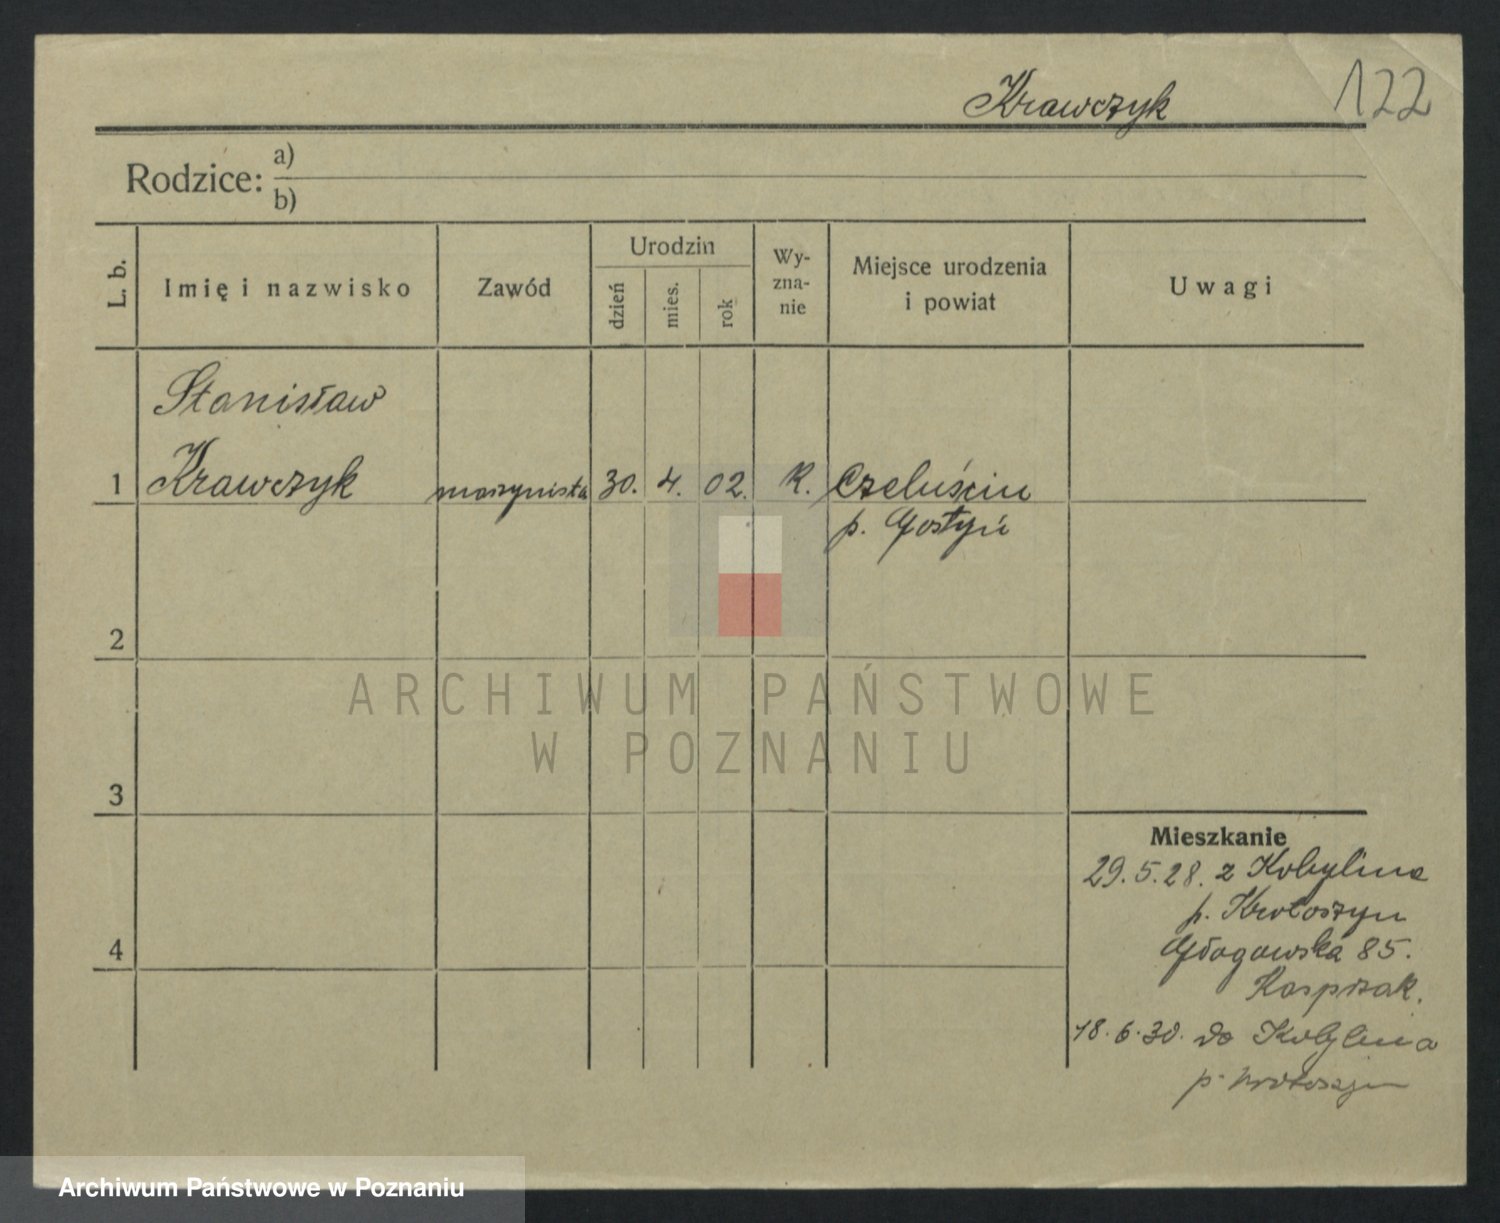 Krawczyk
122
Rodzice: a)
b)
L. b.
Imię i nazwisko
Zawód
Urodzin
dzień
mies.
rok
Wy-
zna-
nie
Miejsce urodzenia
i powiat
Uwagi
Stanisław
1 Krawczyk maszynista 30. 4. 02. R. Czeluścin
p. Gostyń
2
3
4
Mieszkanie
29.5.28. z Kobylina
p. Krotoszyn
Głogowska 85.
Kasprzak.
18.6.30. do Kobylina
p. Krotoszyn
ARCHIWUM PAŃSTWOWE
W POZNANIU
Archiwum Państwowe w Poznaniu